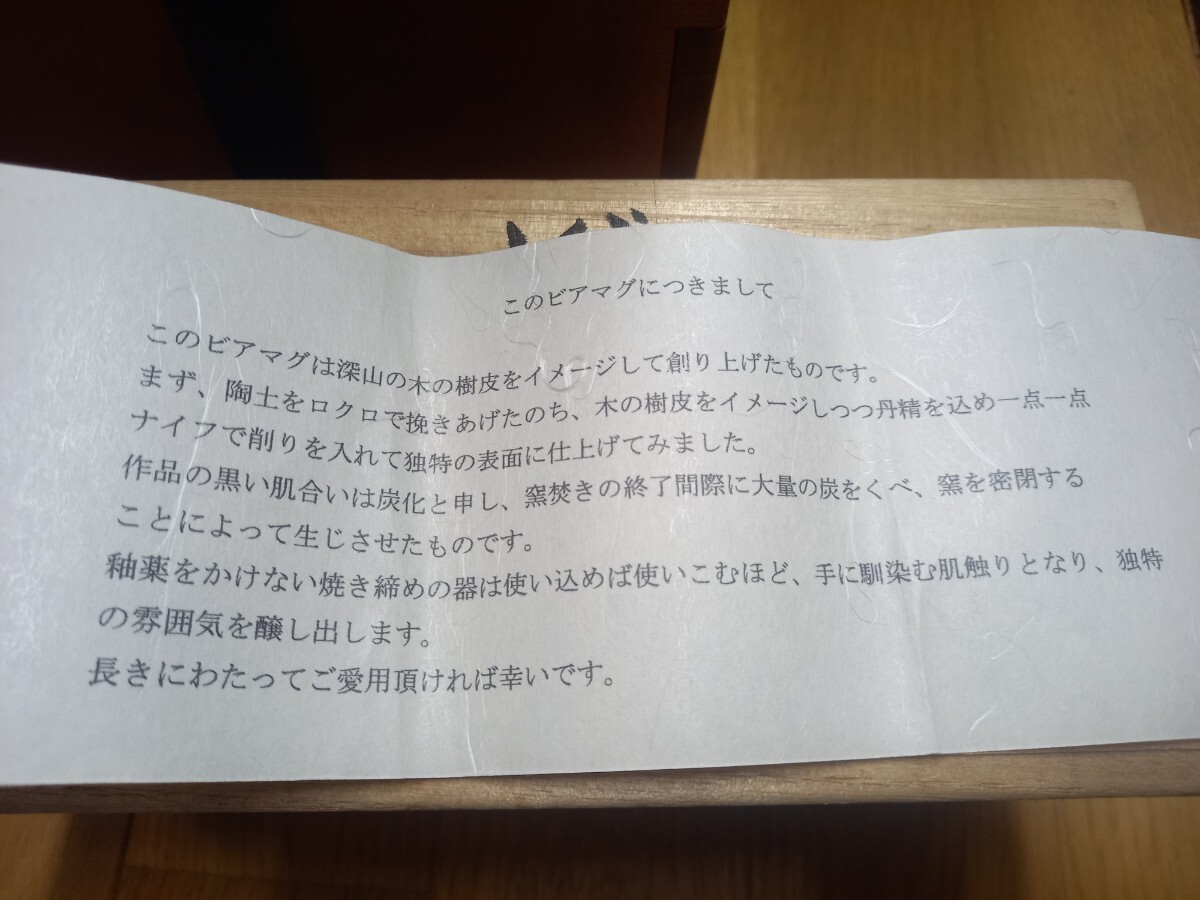 このビアマグにつきまして
このビアマグは深山の木の樹皮をイメージして創り上げたものです。
まず、陶土をロクロで挽きあげたのち、木の樹皮をイメージしつつ丹精を込め一点一点
ナイフで削りを入れて独特の表面に仕上げてみました。
作品の黒い肌合いは炭化と申し、窯焚きの終了間際に大量の炭をくべ、窯を密閉する
ことによって生じさせたものです。
釉薬をかけない焼き締めの器は使い込めば使いこむほど、手に馴染む肌触りとなり、独特
の雰囲気を醸し出します。
長きにわたってご愛用頂ければ幸いです。